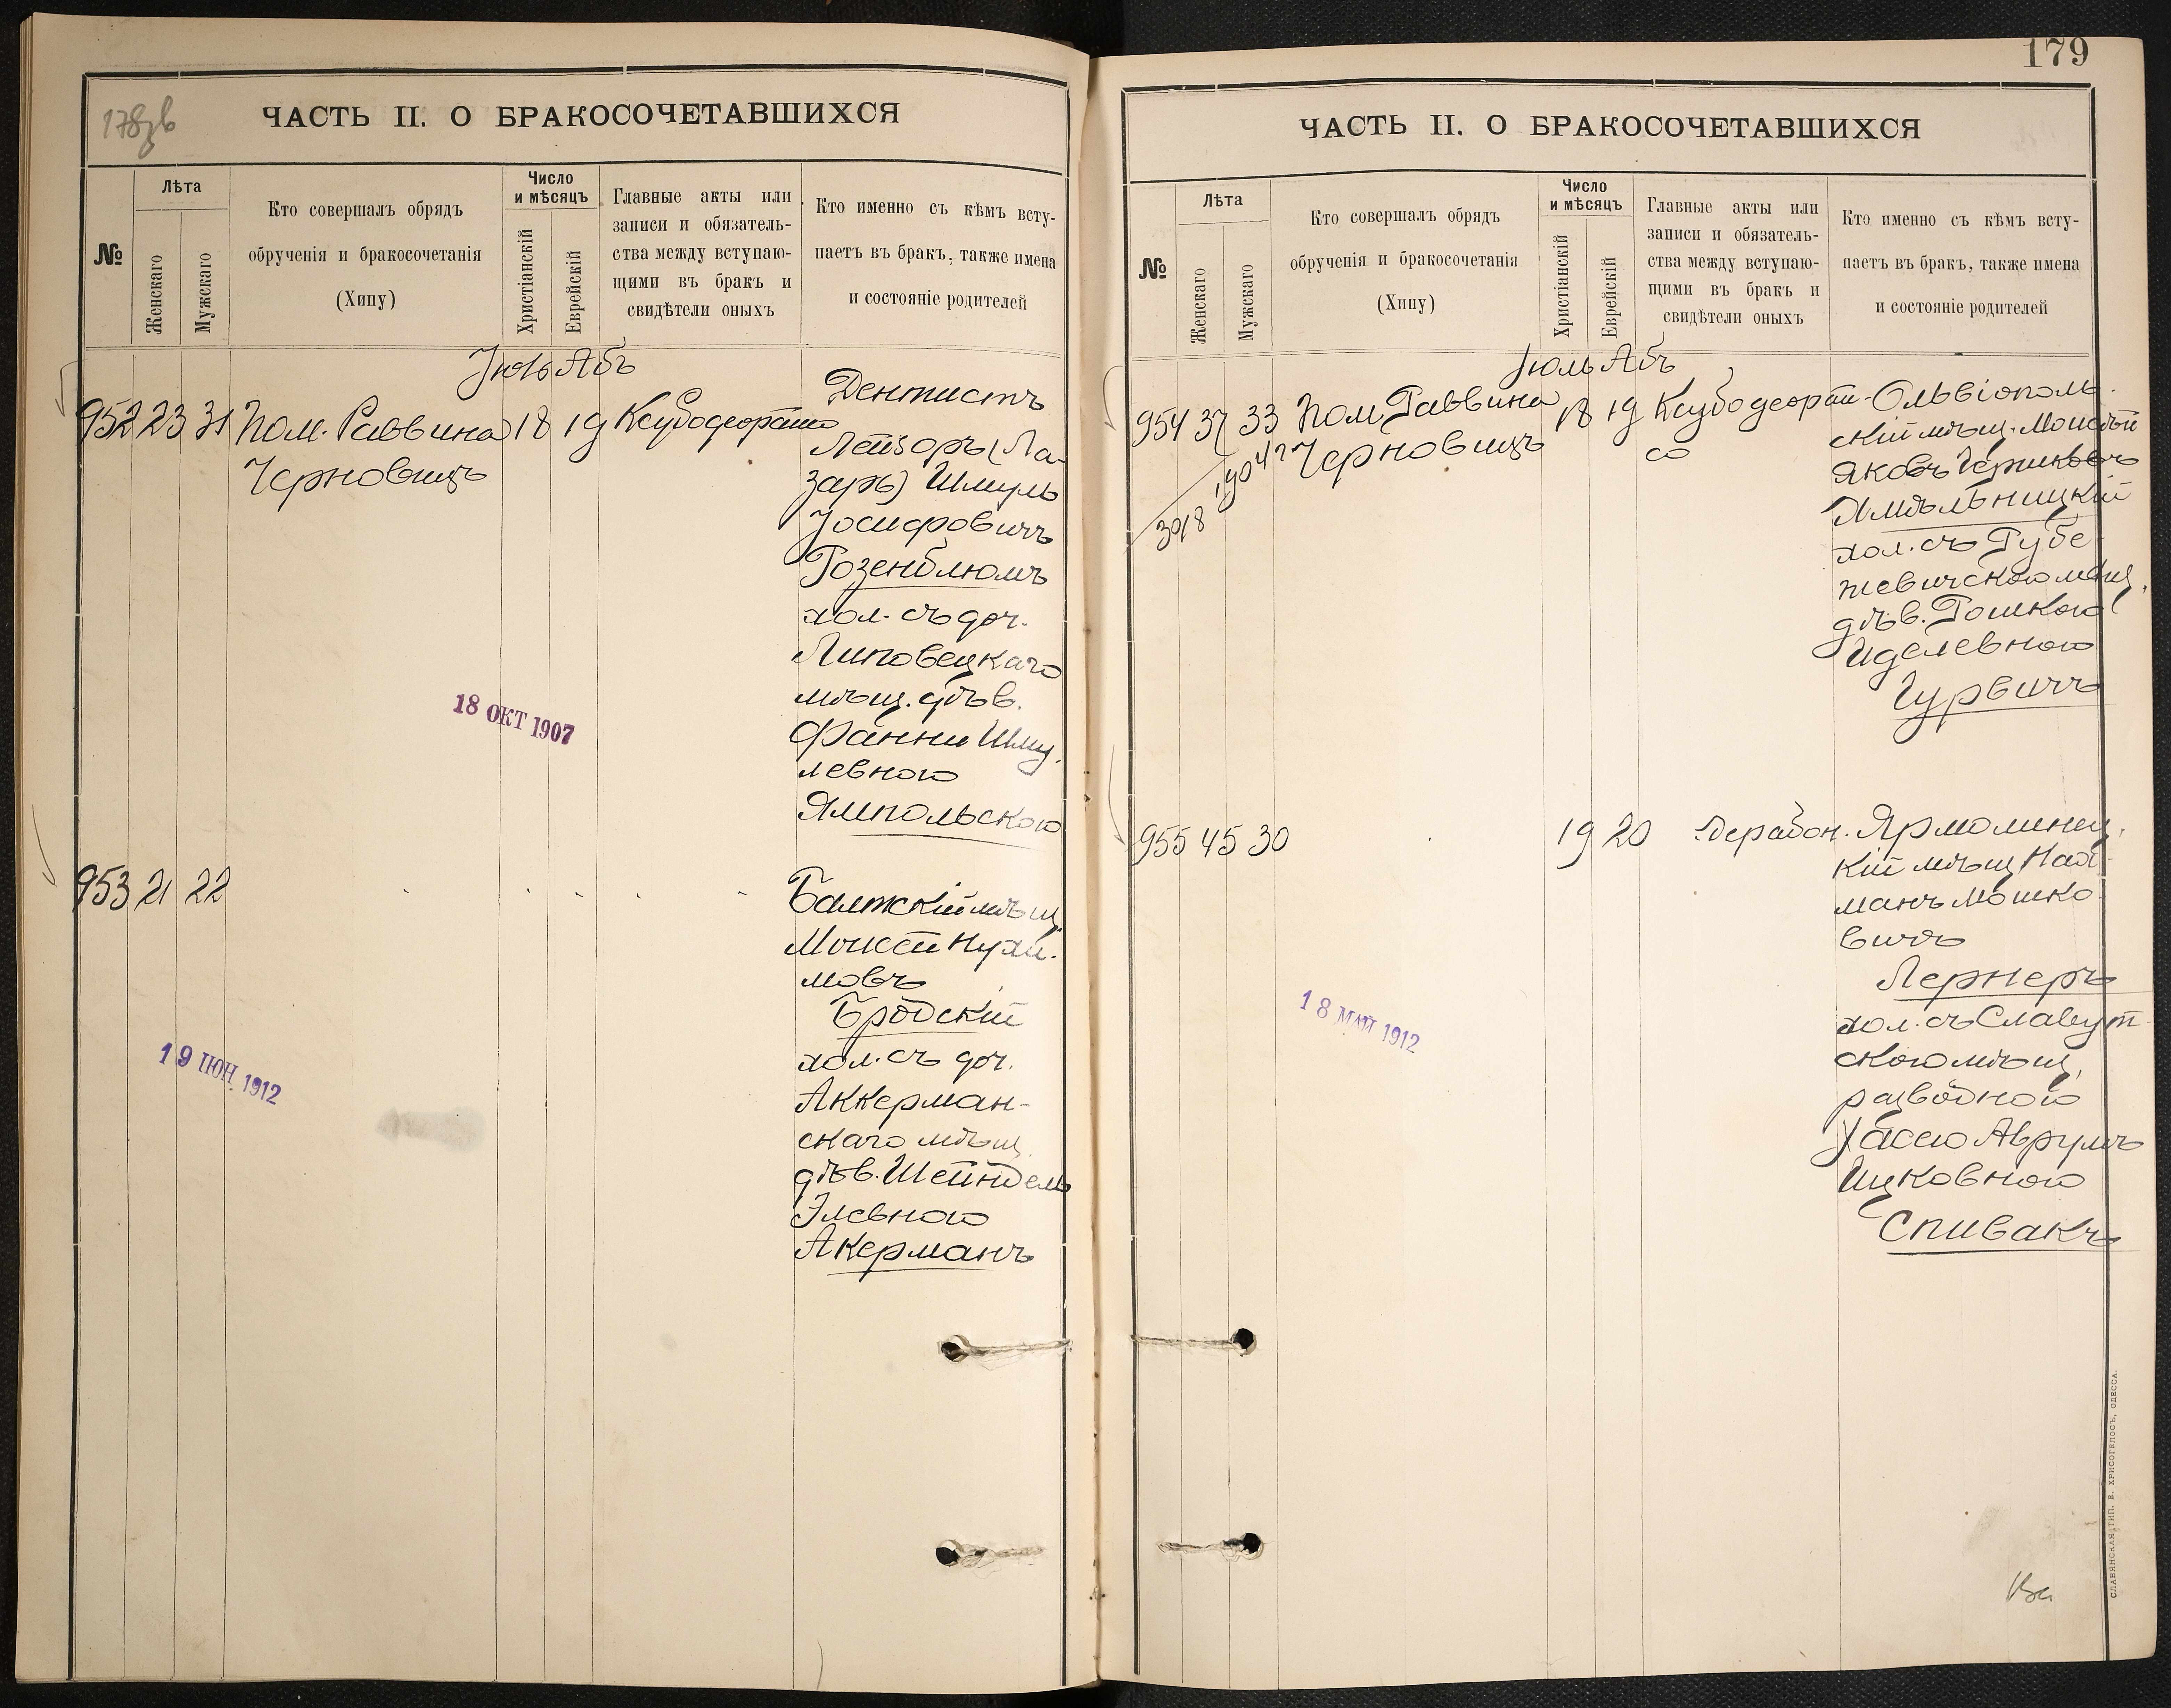 178зв
ЧАСТЬ II. О БРАКОСОЧЕТАВШИХСЯ
№
Лѣта
Женскаго
Мужскаго
Кто совершалъ обрядъ
обрученія и бракосочетанія
(Хипу)
Число
и мѣсяцъ
Христіанскій
Еврейскій
Главные акты или
записи и обязатель-
ства между вступаю-
щими въ бракъ и
свидѣтели оныхъ
Кто именно съ кѣмъ всту-
паетъ въ бракъ, также имена
и состояніе родителей
Іюль Абъ
952 23 31 Пом. Раввина 18 19
Черновицъ
Дентистъ
Лейзоръ (Ла-
зарь) Шмуль
Іосифовичъ
Розенблюмъ
хол. съ доч.
Липовецкаго
мѣщ. дѣв.
Фанни Шму-
левною
Ямпольскою
18 ОКТ 1907
953 21 22
Балтскій мѣщ.
Моисей Нухи-
мовъ
Бродскій
хол. съ доч.
Аккерман-
скаго мѣщ.
дѣв. Шейндель
Элевною
Акерманъ
19 ІЮН 1912
179
ЧАСТЬ II. О БРАКОСОЧЕТАВШИХСЯ
№
Лѣта
Женскаго
Мужскаго
Кто совершалъ обрядъ
обрученія и бракосочетанія
(Хипу)
Число
и мѣсяцъ
Христіанскій
Еврейскій
Главные акты или
записи и обязатель-
ства между вступаю-
щими въ бракъ и
свидѣтели оныхъ
Кто именно съ кѣмъ всту-
паетъ въ бракъ, также имена
и состояніе родителей
Іюль Абъ
954 37 33 Пом. Раввина 18 19
Черновицъ
3018
Ольвіополь-
скій мѣщ. Моисей
Яковъ
Хмѣльницкій
хол. съ Рубе-
жевичскою мѣщ.
дѣв. Рошкою
Иделевною
Гурвичъ
955 45 30 19 20
Ярмолинец.
кій мѣщ. Нах-
манъ Мошко-
вичъ
Лернеръ
хол. съ Славут-
скою мѣщ.
разводною
Хасею Аврумъ
Ицковною
Спивакъ
18 МАЙ 1912
СЛАВЯНСКАЯ ТИП. Е. ХРИСОГЕЛОСЪ, ОДЕССА.